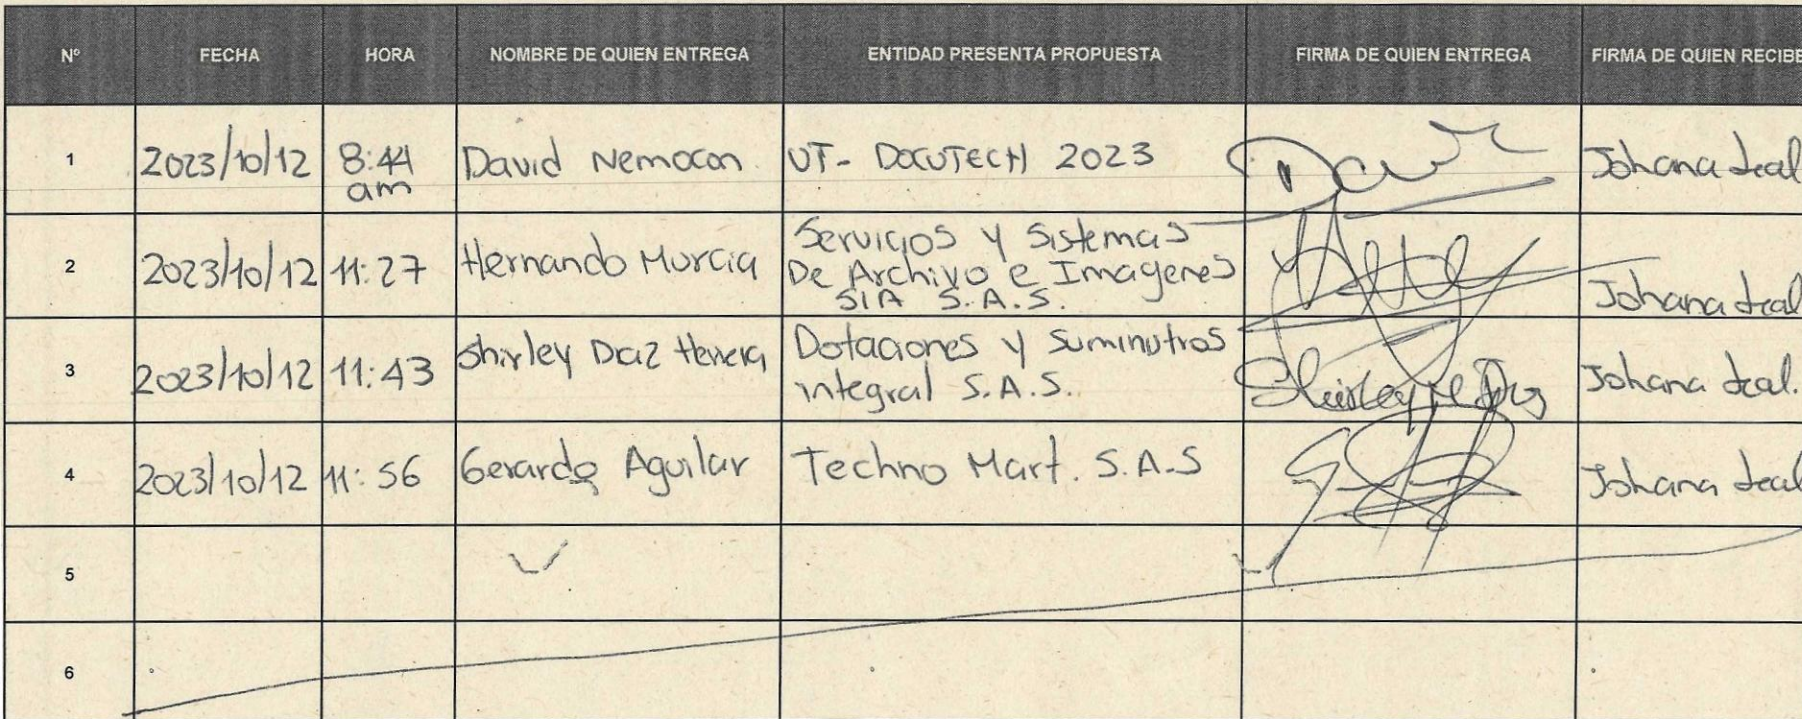 Nº FECHA HORA NOMBRE DE QUIEN ENTREGA ENTIDAD PRESENTA PROPUESTA FIRMA DE QUIEN ENTREGA FIRMA DE QUIEN RECIBE
1 2023/10/12 8:44 am David Nemocon UT- DOCUTECH 2023 Johana Leal
2 2023/10/12 11:27 Hernando Murcia Servicios y Sistemas De Archivo e Imagenes SIA S.A.S. Johana Leal
3 2023/10/12 11:43 Shirley Diaz Herrera Dotaciones y Suminutros integral S.A.S. Shirley Johana Leal.
4 2023/10/12 11:56 Gerardo Aguilar Techno Mart. S.A.S Johana Leal
5
6